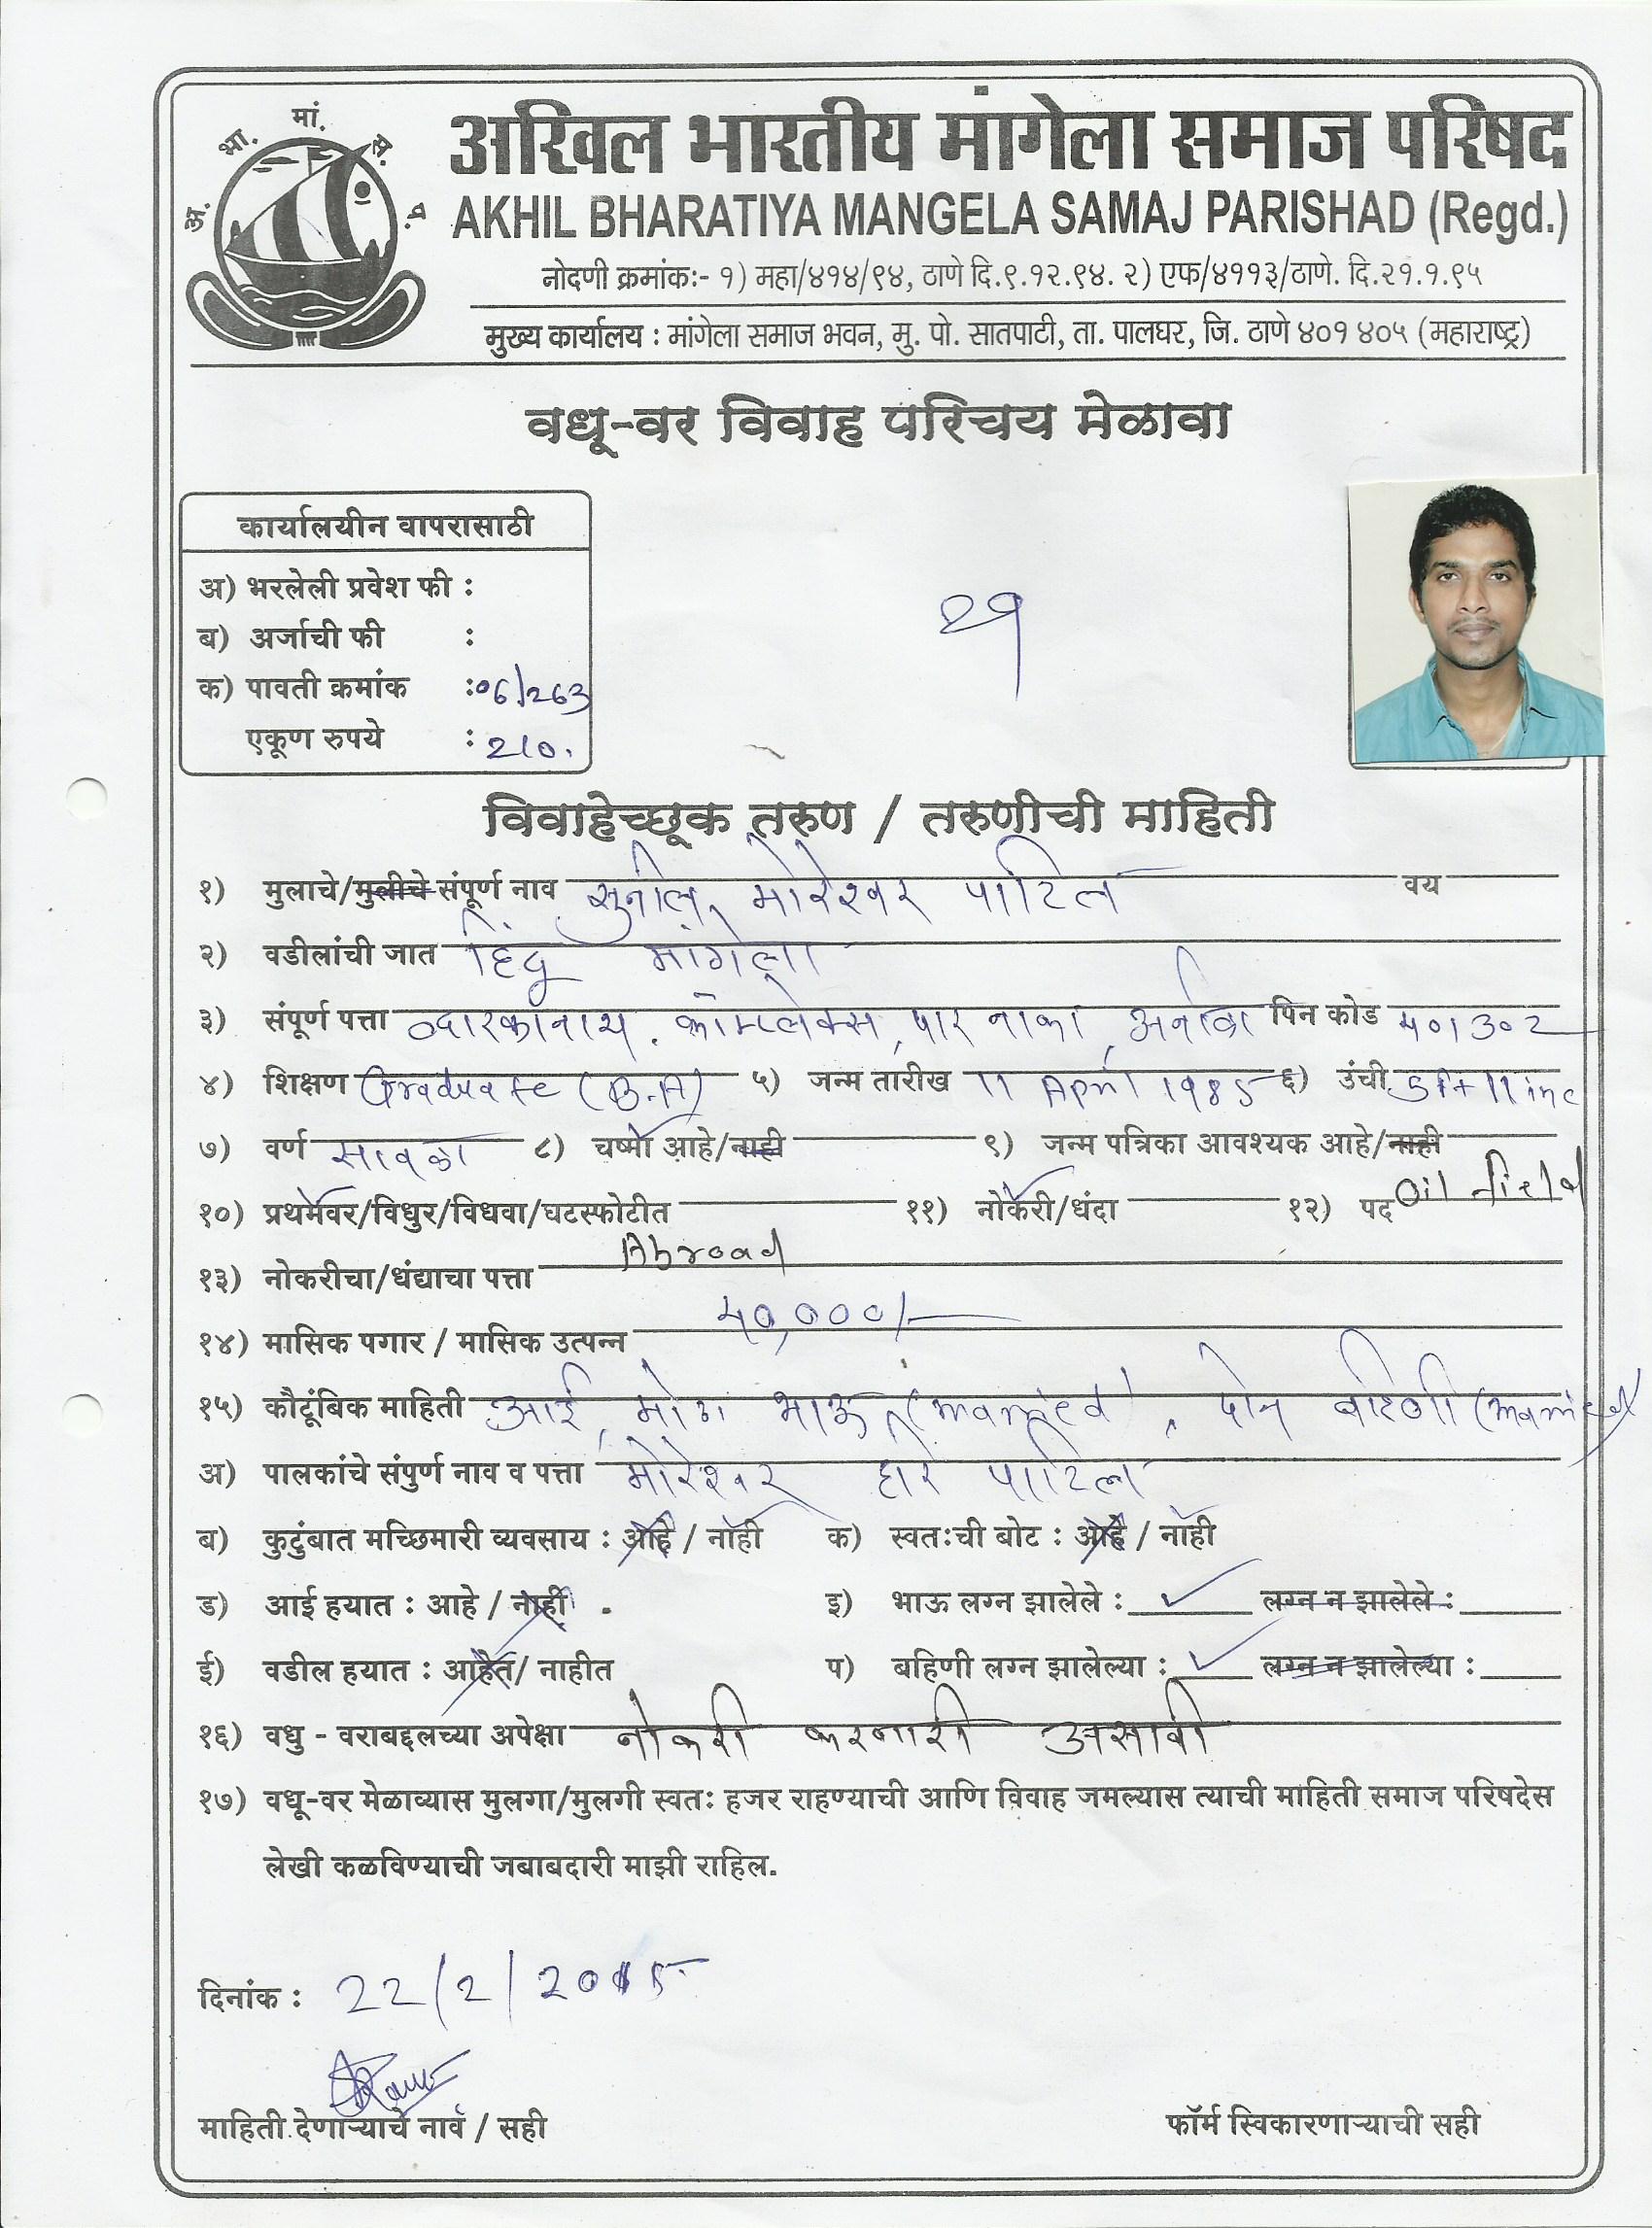 अ. भा. मां. स. प.
अखिल भारतीय मांगेला समाज परिषद
AKHIL BHARATIYA MANGELA SAMAJ PARISHAD (Regd.)
नोदणी क्रमांकः- १) महा/४१४/९४, ठाणे दि.९.१२.९४. २) एफ/४११३/ठाणे. दि.२१.१.९५
मुख्य कार्यालय : मांगेला समाज भवन, मु. पो. सातपाटी, ता. पालघर, जि. ठाणे ४०१ ४०५ (महाराष्ट्र)
वधू-वर विवाह परिचय मेळावा
कार्यालयीन वापरासाठी
अ) भरलेली प्रवेश फी :
ब) अर्जाची फी :
क) पावती क्रमांक : 06/263
एकूण रुपये : 210.
२१
विवाहेच्छूक तरुण / तरुणीची माहिती
१) मुलाचे/मुलीचे संपूर्ण नाव सुनील मोरेश्वर पाटिल वय
२) वडीलांची जात हिंदू मांगेला
३) संपूर्ण पत्ता व्दारकानाथ. कॉम्प्लेक्स, पार नाका, अर्नाळा पिन कोड 401302
४) शिक्षण Graduate (B.A) ५) जन्म तारीख 11 April 1985 ६) उंची 5 ft 11 inc
७) वर्ण सावळा ८) चष्मा आहे/नाही ९) जन्म पत्रिका आवश्यक आहे/नाही
१०) प्रथमवर/विधुर/विधवा/घटस्फोटीत ११) नोकरी/धंदा १२) पद Oil field
१३) नोकरीचा/धंद्याचा पत्ता Abroad
१४) मासिक पगार / मासिक उत्पन्न 40,000/-
१५) कौटूंबिक माहिती आई, मोठा भाऊ (married), दोन बहिणी (married)
अ) पालकांचे संपुर्ण नाव व पत्ता मोरेश्वर हरि पाटिल
ब) कुटुंबात मच्छिमारी व्यवसाय : आहे / नाही क) स्वतःची बोट : आहे / नाही
ड) आई हयात : आहे / नाही . इ) भाऊ लग्न झालेले : ✓ लग्न न झालेले :
ई) वडील हयात : आहेत/ नाहीत प) बहिणी लग्न झालेल्या : ✓ लग्न न झालेल्या :
१६) वधु - वराबद्दलच्या अपेक्षा नोकरी करनारी असावी
१७) वधू-वर मेळाव्यास मुलगा/मुलगी स्वतः हजर राहण्याची आणि विवाह जमल्यास त्याची माहिती समाज परिषदेस
लेखी कळविण्याची जबाबदारी माझी राहिल.
दिनांक : 22/2/2015
माहिती देणाऱ्याचे नाव / सही फॉर्म स्विकारणाऱ्याची सही